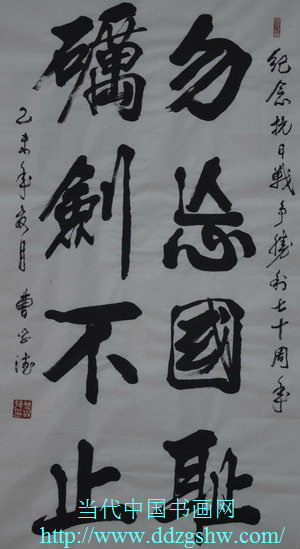 紀念抗日戰爭勝利七十周年
勿忘國耻
礪劍不止
乙未年 月 曹 德
当代中国书画网
http://www.ddzgshw.com